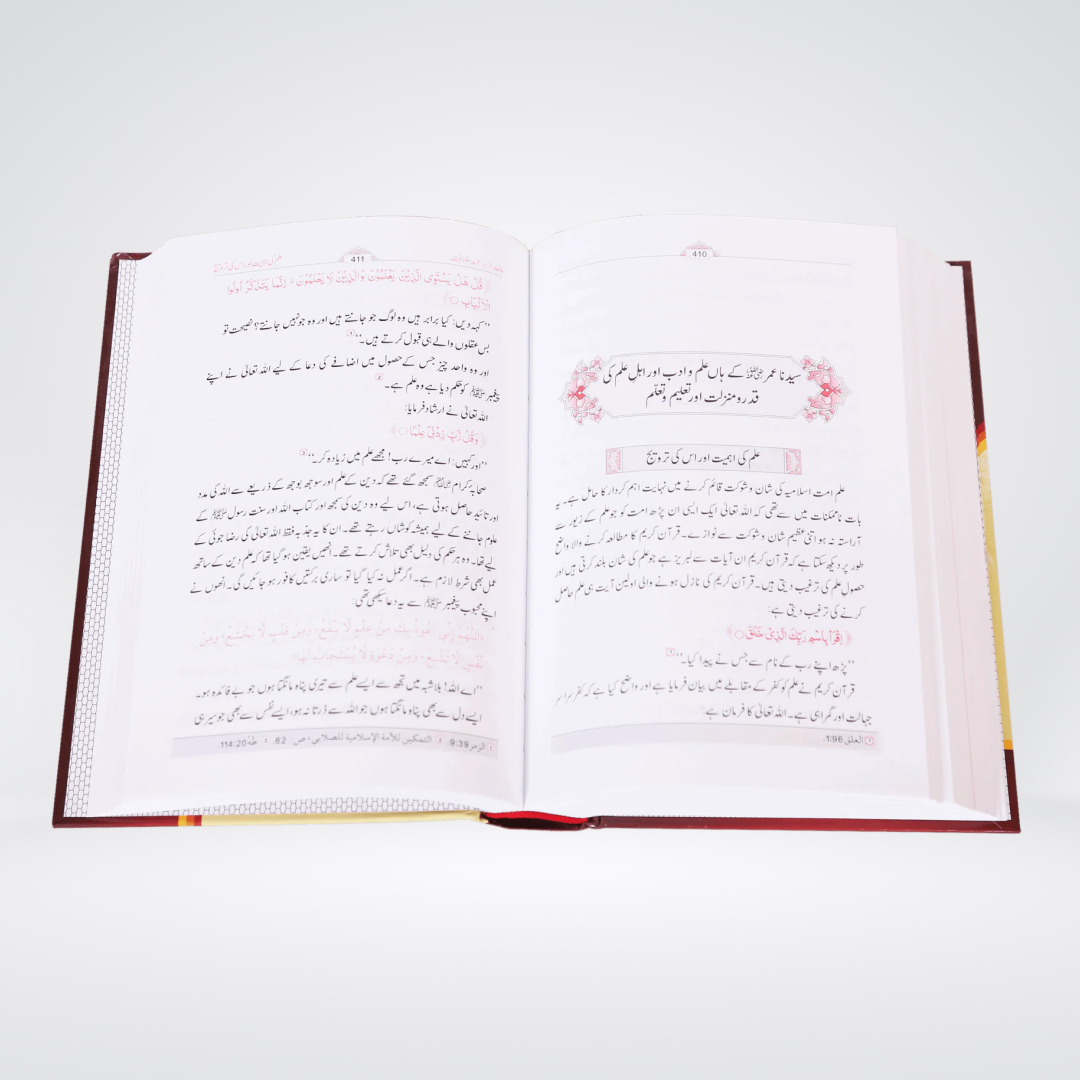 410
سیدنا عمر رضی اللہ عنہ کے ہاں علم و ادب اور اہل علم کی
قدر و منزلت اور تعلیم و تعلّم
علم کی اہمیت اور اس کی ترویج
علم امت اسلامیہ کی شان و شوکت قائم کرنے میں نہایت اہم کردار کا حامل ہے۔ یہ
بات ناممکنات میں سے تھی کہ اللہ تعالیٰ ایک ایسی ان پڑھ امت کو جو علم کے زیور سے
آراستہ نہ ہو اتنی عظیم شان و شوکت سے نوازے۔ قرآن کریم کا مطالعہ کرنے والا واضح
طور پر دیکھ سکتا ہے کہ قرآن کریم ان آیات سے لبریز ہے جو علم کی شان بلند کرتی ہیں اور
حصولِ علم کی ترغیب دیتی ہیں۔ قرآن کریم کی نازل ہونے والی اولین آیت ہی علم حاصل
کرنے کی ترغیب دیتی ہے:
﴿اِقْرَاْ بِاسْمِ رَبِّكَ الَّذِیْ خَلَقَ ○﴾
’’پڑھ اپنے رب کے نام سے جس نے پیدا کیا۔‘‘
قرآن کریم نے علم کو کفر کے مقابلے میں بیان فرمایا ہے اور واضح کیا ہے کہ کفر سراسر
جہالت اور گمراہی ہے۔ اللہ تعالیٰ کا فرمان ہے:
العلق 1:96.
411
علم کی اہمیت اور اس کی ترویج
﴿قُلْ هَلْ یَسْتَوِی الَّذِیْنَ یَعْلَمُوْنَ وَالَّذِیْنَ لَا یَعْلَمُوْنَ ؕ اِنَّمَا یَتَذَكَّرُ اُولُوا
الْاَلْبَابِ ○﴾
’’کہہ دیں: کیا برابر ہیں وہ لوگ جو جانتے ہیں اور وہ جو نہیں جانتے؟ نصیحت تو
بس عقلوں والے ہی قبول کرتے ہیں۔‘‘
اور وہ واحد چیز جس کے حصول میں اضافے کی دعا کے لیے اللہ تعالیٰ نے اپنے
پیغمبر ﷺ کو حکم دیا ہے وہ علم ہے۔
اللہ تعالیٰ نے ارشاد فرمایا:
﴿وَقُلْ رَّبِّ زِدْنِیْ عِلْمًا ○﴾
’’اور کہیں: اے میرے رب! مجھے علم میں زیادہ کر۔‘‘
صحابہ کرام سمجھ گئے تھے کہ دین کے علم اور سوجھ بوجھ کے ذریعے سے اللہ کی مدد
اور تائید حاصل ہوتی ہے، اس لیے وہ دین کی سمجھ اور کتاب اللہ اور سنت رسول ﷺ کے
علوم جاننے کے لیے ہمیشہ کوشاں رہتے تھے۔ ان کا یہ جذبہ فقط اللہ تعالیٰ کی رضا جوئی کے
لیے تھا۔ وہ ہر حکم کی دلیل بھی تلاش کرتے تھے۔ انھیں یقین ہو گیا تھا کہ علم دین کے ساتھ
عمل بھی شرط لازم ہے۔ اگر عمل نہ کیا گیا تو ساری برکتیں کافور ہو جائیں گی۔ انھوں نے
اپنے محبوب پیغمبر ﷺ سے یہ دعا سیکھی تھی:
«اَللّٰهُمَّ إِنِّي أَعُوذُ بِكَ مِنْ عِلْمٍ لَا يَنْفَعُ، وَمِنْ قَلْبٍ لَا يَخْشَعُ، وَمِنْ
نَفْسٍ لَا تَشْبَعُ، وَمِنْ دَعْوَةٍ لَا يُسْتَجَابُ لَهَا»
’’اے اللہ! بلاشبہ میں تجھ سے ایسے علم سے تیری پناہ مانگتا ہوں جو بے فائدہ ہو۔
ایسے دل سے بھی پناہ مانگتا ہوں جو اللہ سے ڈرتا نہ ہو، ایسے نفس سے بھی جو سیر ہی
الزمر 9:39. التمكين للأمة الإسلامية للصلابي، ص: 62. طٰهٰ 114:20.